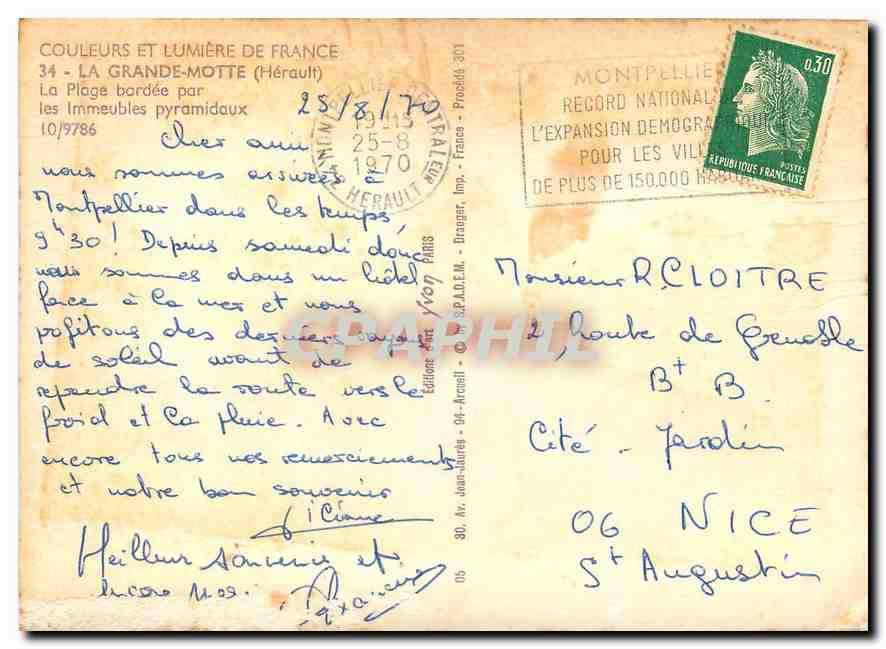 COULEURS ET LUMIÈRE DE FRANCE
34 - LA GRANDE-MOTTE (Hérault)
La Plage bordée par
les Immeubles pyramidaux
10/9786
25/8/70
Cher ami
nous sommes arrivées à
Montpellier dans les temps
9h30! Depuis samedi donc
nous sommes dans un hôtel
face à la mer et nous
pofitons des derniers rayons
de soleil avant de
reprendre la route vers le
froid et la pluie. Avec
encore tous nos remerciements
et notre bon souvenir
Meilleur souvenir et
encore
MONTPELLIER CENTRAL
19H15
25-8
1970
HERAULT
MONTPELLIE
RECORD NATIONAL
L'EXPANSION DEMOGRA
POUR LES VILL
DE PLUS DE 150.000
0,30
POSTES
REPUBLIQUE FRANÇAISE
Monsieur R. CLOITRE
2, route de Grenoble
Bt B
Cité - Jardin
06 NICE
St Augustin
05 30, Av. Jean-Jaurès - 94-Arcueil - © S.P.A.D.E.M. - Draeger, Imp. - France - Procédé 301
Editions d'Art Yvon PARIS
CPAPHIL